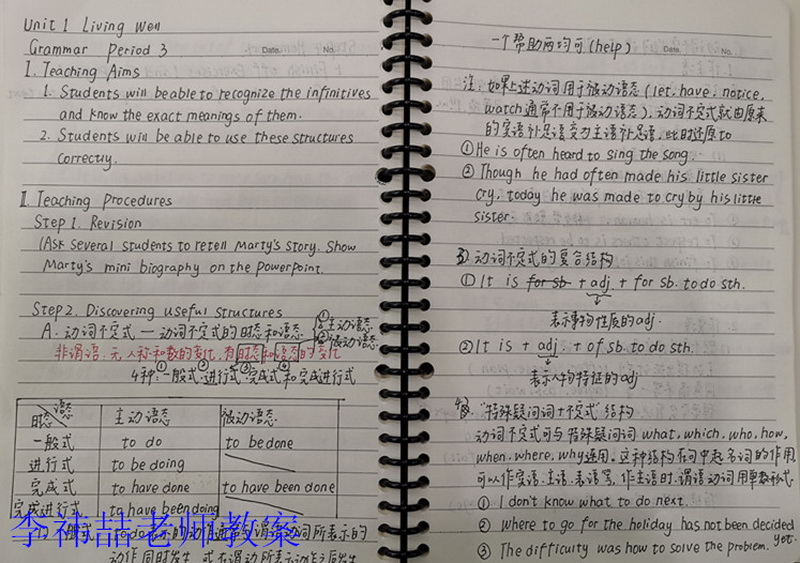 Unit 1 Living Well
Grammar Period 3
Date. No.
I. Teaching Aims
1. Students will be able to recognize the infinitives
and know the exact meanings of them.
2. Students will be able to use these structures
correctly.
II. Teaching Procedures
Step 1. Revision
(Ask several students to retell Marty's story. Show
Marty's mini biography on the powerpoint.
Step 2. Discovering useful structures
A. 动词不定式 — 动词不定式的时态和语态 ①主动语态
②被动语态
非谓语, 无人称和数的变化, 有时态和语态的变化
4种: ①一般式 ②进行式 ③完成式 ④和完成进行式
时态 语态 主动语态 被动语态
一般式 to do to be done
进行式 to be doing
完成式 to have done to have been done
完成进行式 to have been doing
李祎喆老师教案
一般式 to do表示的动作通常与谓语动词所表示的
动作同时发生 或在谓动所表示动作之后发生
一个帮助两均可(help)
Date. No.
注: 如果上述动词用于被动语态(let, have, notice,
watch通常不用于被动语态), 动词不定式就由原来
的宾语补足语变为主语补足语, 此时还原to
① He is often heard to sing the song.
② Though he had often made his little sister
cry, today he was made to cry by his little
sister.
3) 动词不定式的复合结构
① It is for sb + adj + for sb. to do sth.
表示事物性质的adj.
② It is + adj + of sb. to do sth.
表示人物特征的adj
4) "特殊疑问词+不定式" 结构
动词不定式可与特殊疑问词 what, which, who, how,
when, where, why连用, 这种结构在句中起名词的作用,
可以作宾语, 主语, 表语等, 作主语时, 谓语动词用单数形式.
① I don't know what to do next.
② Where to go for the holiday has not been decided
yet.
③ The difficulty was how to solve the problem.